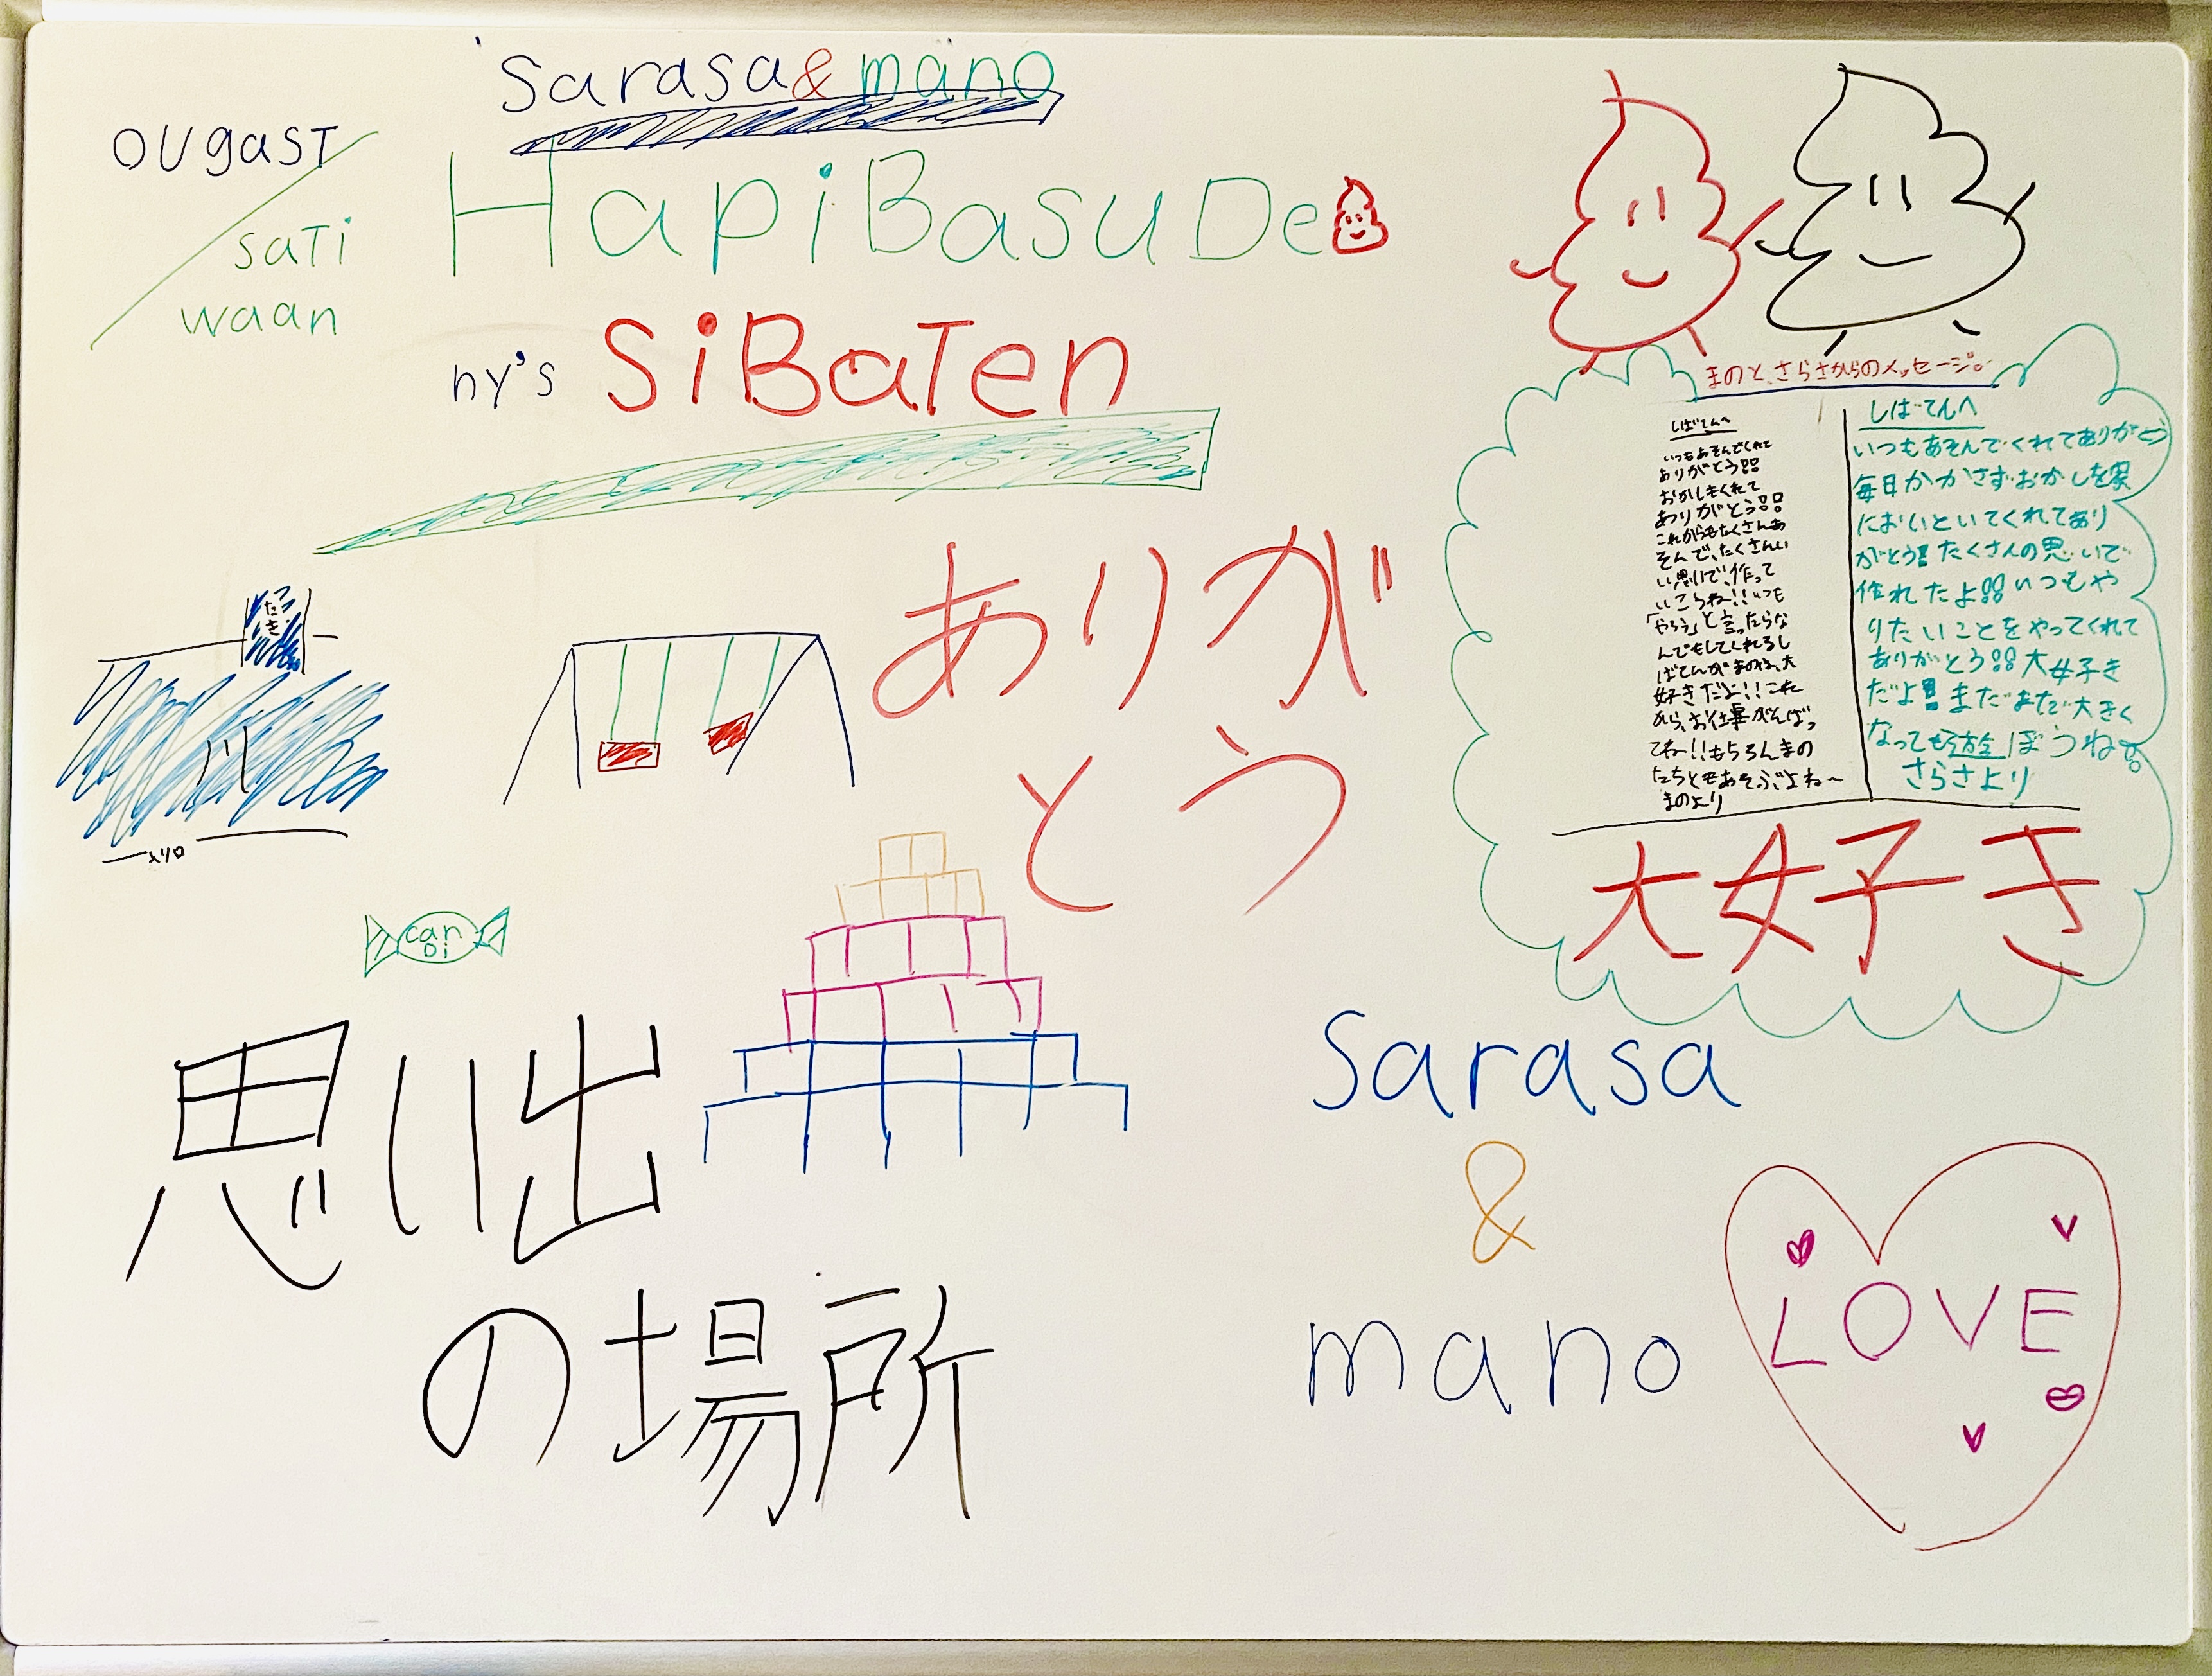 sarasa&mano
ougasT
saTi
waan
HapiBasuDe
ny's SiBaTen
まのと、さらさからのメッセージ。
しばてんへ
いつもあそんでくれて
ありがとう!!
おかしもくれて
ありがとう!!
これからもたくさんあ
そんで、たくさんい
い思いで、作って
いこうね!!いつも
「やろう」と言ったらな
んでもしてくれるし
ばてんがまのは、大
好きだよ!!これ
から、お仕事がんばっ
てね!!もちろんまの
たちともあそぶよね〜
まのより
しばてんへ
いつもあそんでくれてありがとう
毎日かかさずおかしを家
においといてくれてあり
がとう!!たくさんの思いで
作れたよ!!いつもや
りたいことをやってくれて
ありがとう!!大好き
だよ!!まだまだ大きく
なっても遊ぼうね。
さらさより
大好き
ありが
とう
たき
川
メリロ
can
Di
思い出
の場所
sarasa
&
mano
LOVE